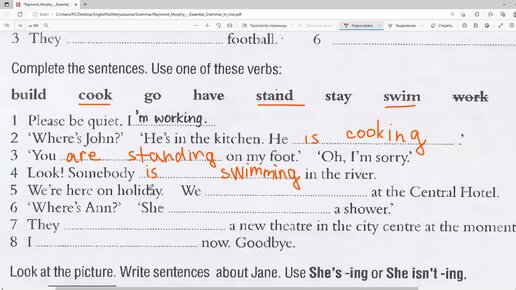 Raymond_Murphy_-_Essential_Grammar_in_Use.pdf
3 They ........ football. 6 ........
Complete the sentences. Use one of these verbs:
build cook go have stand stay swim work
1 Please be quiet. I 'm working.
2 'Where's John?' 'He's in the kitchen. He is cooking .'
3 'You are standing on my foot.' 'Oh, I'm sorry.'
4 Look! Somebody is swimming in the river.
5 We're here on holiday. We ........ at the Central Hotel.
6 'Where's Ann?' 'She ........ a shower.'
7 They ........ a new theatre in the city centre at the moment
8 I ........ now. Goodbye.
Look at the picture. Write sentences about Jane. Use She's -ing or She isn't -ing.